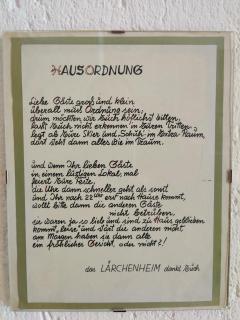 HAUSORDNUNG
Liebe Gäste groß und klein
überall muss Ordnung sein,
drum möchten wir Euch höflichst bitten,
lasst Euch nicht erkennen an Euren Tritten
legt ab Eure Skier und Schuh' im Extra Raum,
dort steht dann alles wie im Traum.
und wenn Ihr lieben Gäste
in einem lustigen Lokal, mal
feiert Eure Feste,
die Uhr dann schneller geht als sonst
und Ihr nach 22 Uhr erst nach Haus kommt,
wollt bitte dann die anderen Gäste
nicht betrüben,
sie waren ja so lieb und sind zu Haus geblieben
kommt leise und stört die anderen nicht
am Morgen haben sie dann alle
ein fröhlicher Gesicht, oder nicht?!
das LÄRCHENHEIM dankt Euch